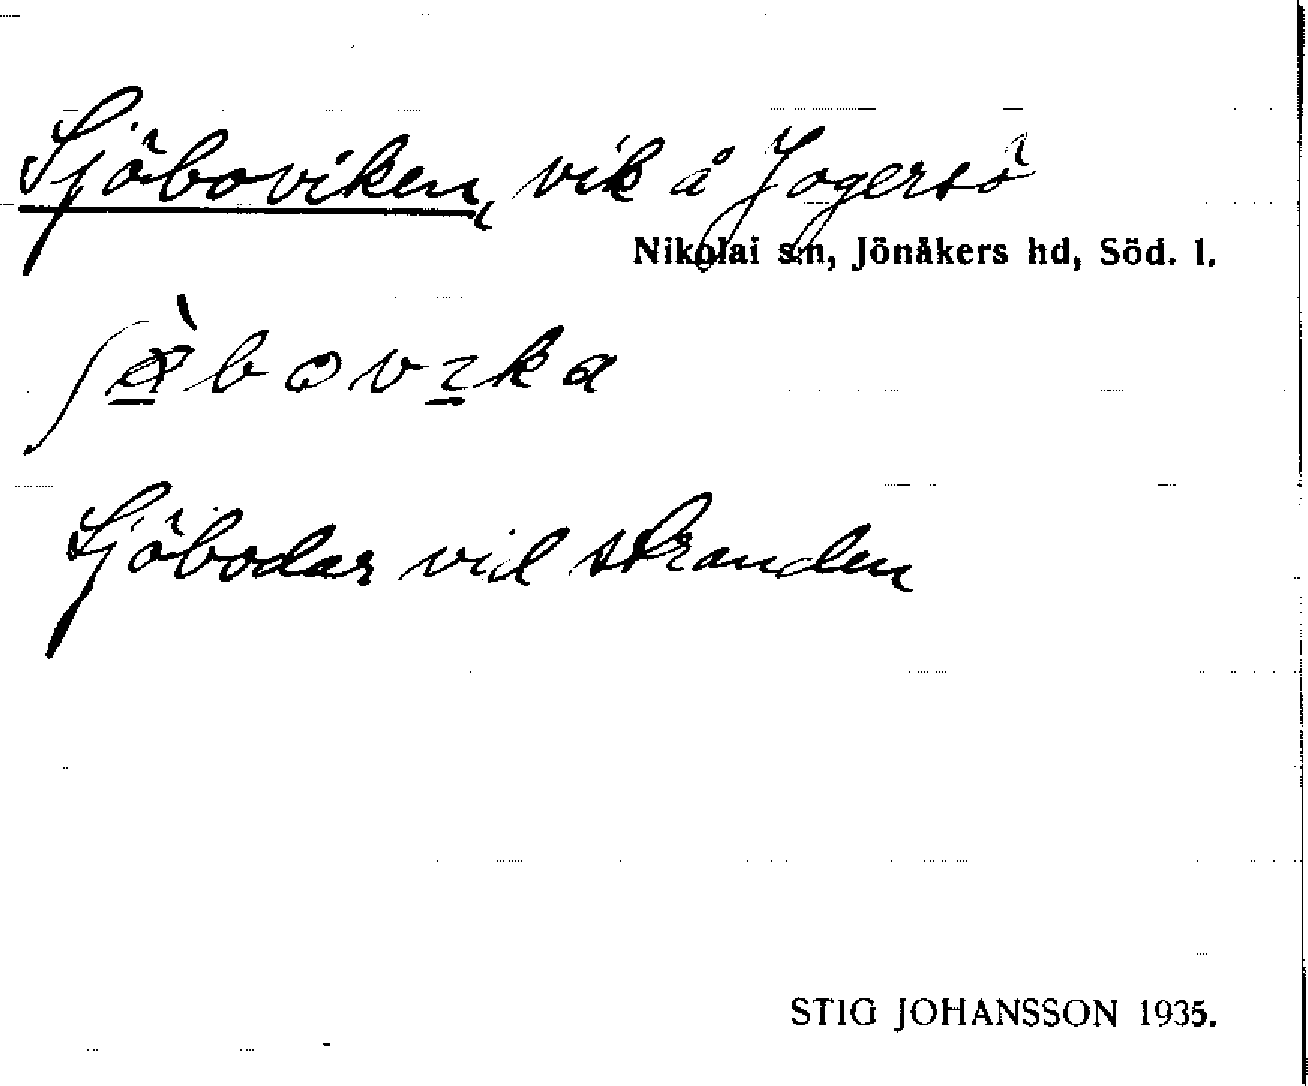 Sjöboviken, vik å Jogersö
Nikolai s:n, Jönåkers hd, Söd. l.
Sjöbodar vid stranden
STIG JOHANSSON 1935.